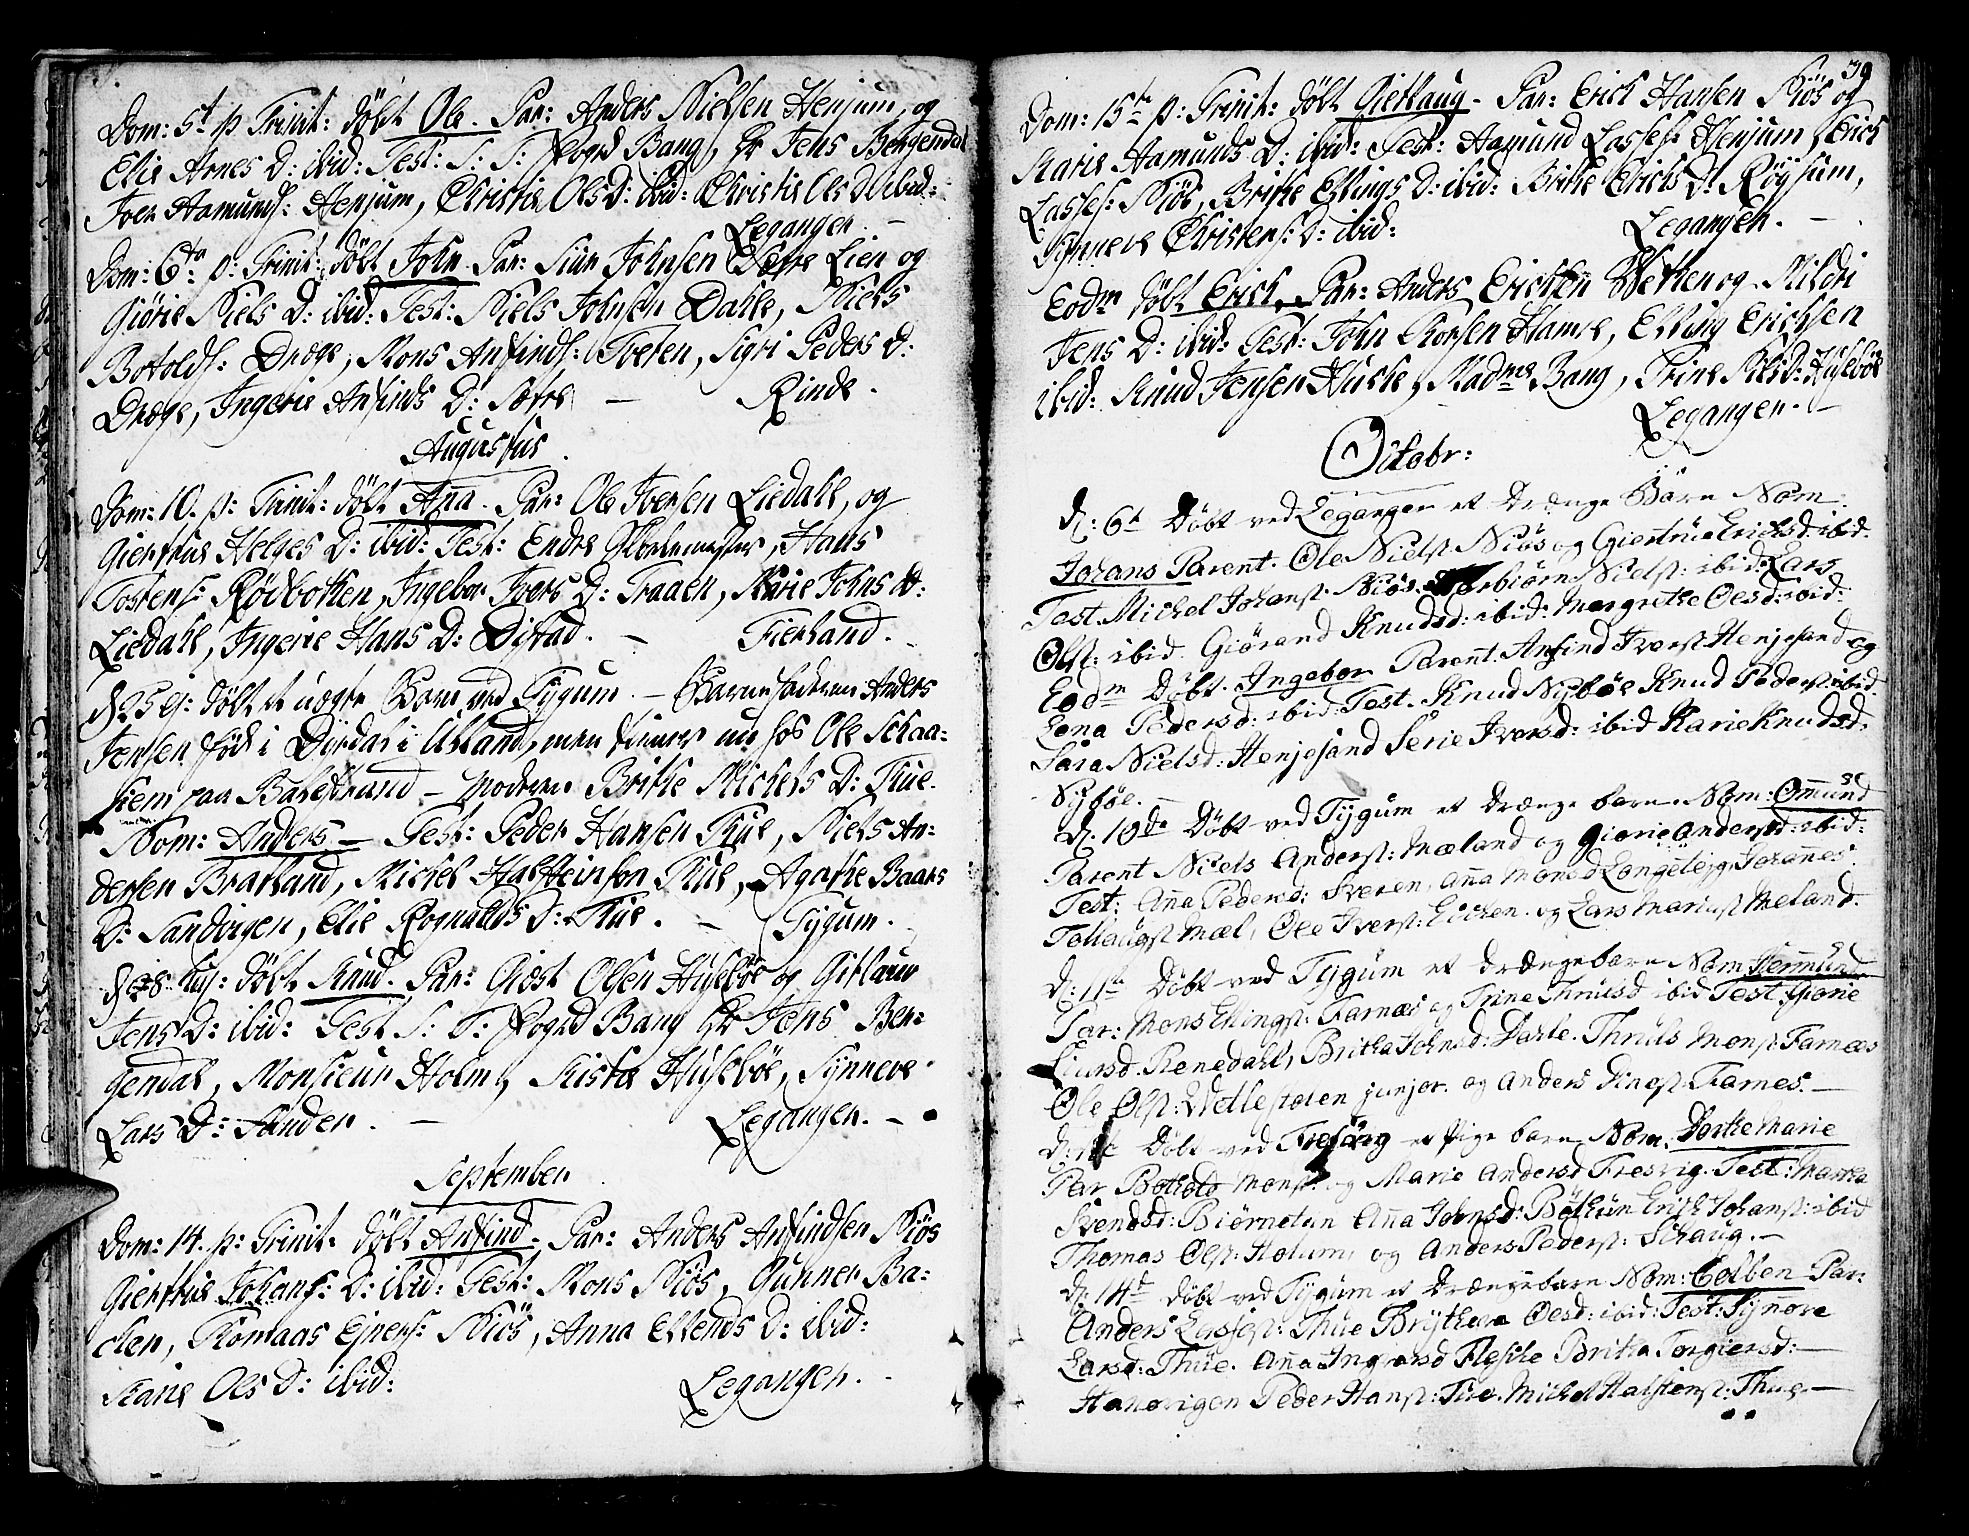 Dom: 5t p Trinit: døbt Ole. Par: Anders Nielsen Henjum, og
Elie Arnes D: ibid: Test: S: T: Fogd Bang, Hr Jens Bergendal
Iver Aamunds: Henjum, Christie Ols D: ibid: Christie Ols D: ibid:
Legangen. —
Dom: 6ta p: Trinit: døbt John. Par: Siur Johnsen Sætre Lien og
Giørie Niels D: ibid: Test: Niels Johnsen Dahle, Niels
Botolds: Dræge, Mons Ansinds: Tveren, Sigri Peders D:
Dræge, Ingerie Ansinds D: Sætre — Rinde.
Augustus.
Dom: 10. p: Trinit: døbt Aña. Par: Ole Iversen Liedahl, og
Giertrue Helges D: ibid: Test: Endre Skolemester, Hans
Tostens: Rødbotten, Ingebor Ivers D: Traaen, Marie Johns D:
Liedahl, Ingerie Hans D: Distad. — Fierland.
d 25 ej: døbt et uægte Barn ved Tygum. — Barnefaderen Anders
Jensen fød i Dørdal i Utland, men tiener nu hos Ole Schaa-
siem paa Balestrand — Moderen Brithe Michels D: Tue.
Nom: Anders — Test: Peder Hansen Tue, Niels An-
dersen Brarland, Michel Halsteinson Tue, Agathe Baars
D: Sandvigen, Elie Rognalds D: Tue. — Tygum.
d 28 huj: døbt Knud. Par: Giest Olsen Husebøe og Gitlaur
Jens D: ibid: Test S: T: Fogd Bang Hr Jens Ber-
gendal, Monsieur Holm, Kistie Husebøe, Synneve
Lars D: Sander. — Legangen. —
September
Dom: 14. p: Trinit. døbt Ansind. Par: Anders Ansindsen Niøs
Giertrue Johans: D: ibid: Test: Mons Niøs, Gunner Ba-
chen, Thomaas Ejvens: Niøs, Anna Ellends D: ibid:
Karie Ols D: ibid: Legangen. —
39
Dom: 15te p: Trinit: døbt Gietlaug. Par: Erich Hansen Niøs og
Marie Aamunds D: ibid: Test: Aamund Lasses: Henjum, Erich
Lasses: Niøs, Brithe Ellings D: ibid: Brithe Erichs D: Røysum,
Synneve Christens: D: ibid: Legangen. —
Eodm døbt Erich. Par: Anders Erichsen Wetten og Mildri
Jens D: ibid: Test: John Thorsen Hamre, Elling Erichsen
ibid: Knud Jensen Husle, Madme Bang, Trine Nils D: Husebøe
Legangen. —
Octobr:
d: 6t Døbt ved Legangen et drænge Barn Nom.
Johans Parent. Ole Nielst Niøs og Giertrüe Ericksd: ibid.
Test. Michel Johanst. Niøs. Torbiørn Nielst: ibid: Lars
Olst: ibid. Giørend Knudsd: ibid: Margrethe Olsd: ibid:
Eodm Døbt. Ingebor Parent. Ansind Iverst Henjesand og
Lena Pedersd: ibid: Test. Knud Nybøe Knud Pederst: ibid.
Sara Nielsd: Henjesand Serie Iversd: ibid Karie Knudsd:
Nybøe. —
d. 10de Døbt ved Tygum et drænge barn. Nom: Omund
Parent Niels Anderst: Mæland og Giørie Andersd: ibid:
Test: Aña Pedersd: Sveren, Aña Monsd Longeteig, Johañes
Tollaugst Mæl, Ole Iverst: Eichen. og Lars Mariust Meland.
d: 11te Døbt ved Tygum et drængebarn Nom Hermund
Par: Mons Ellingst: Farnæs og Trine Thruesd ibid Test: Giørie
Siursd. Renedahl, Britha Johnsd: Darle. Thruls Monst Farnæs
Ole Olst: Wetlestølen junjor. og Anders Finest Farnes. —
Døbt ved Fresvig et Pige barn Nom. Dorthe Marie
Par Bothold Monst: og Marie Andersd Fresvig. Test: Martha
Svendsd: Biørnetun Aña Johnsd: Bøthun Erich Johanst: ibid
Thomas Olst: Holum, og Anders Pederst: Schaug. —
d: 14d Døbt ved Tygum et drængebarn Nom: Colben Par:
Anders Lassest: Thue Brythere Olsd: ibid: Test: Syñøve
Larsd: Thüe. Aña Ingvarsd Flesche Britha Torgiersd: —
Hanevigen Peder Hanst: Tue. Michel Halstenst: Thue. —